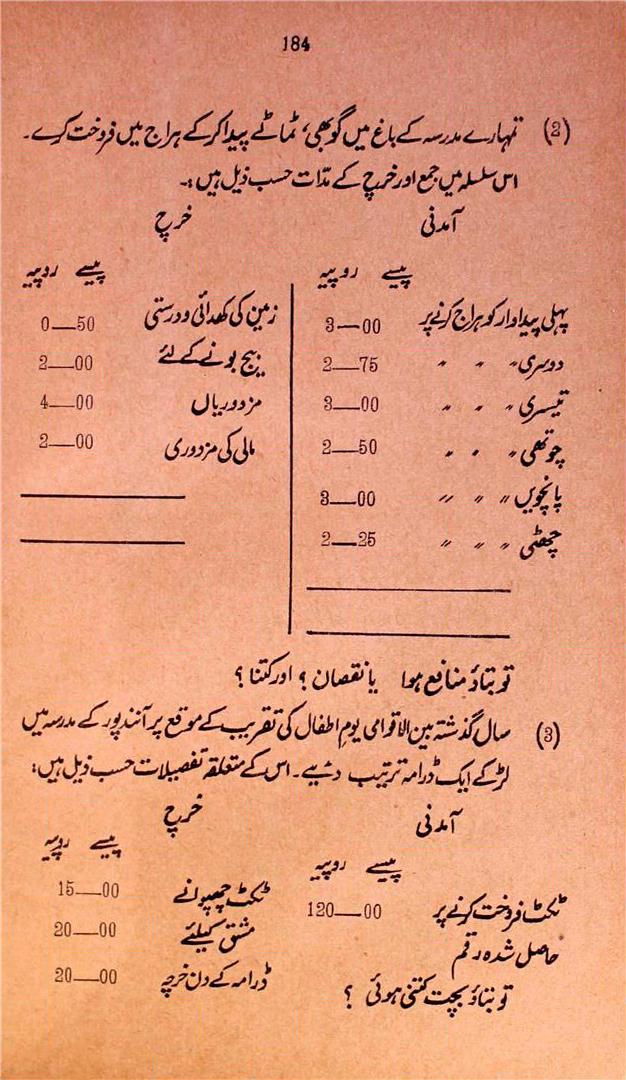 184
(2) تمہارے مدرسہ کے باغ میں گوبھی، ٹماٹے پیدا کرکے ہراج میں فروخت کرے۔
اس سلسلہ میں جمع اور خرچ کے مدّات حسب ذیل ہیں :۔
آمدنی
پیسے روپیہ
پہلی پیداوار کو ہراج کرنے پر 3—00
دوسری 〃 〃 〃 2—75
تیسری 〃 〃 〃 3—00
چوتھی 〃 〃 〃 2—50
پانچویں 〃 〃 〃 3—00
چھٹی 〃 〃 〃 2—25
خرچ
پیسے روپیہ
زمین کی کھدائی و درستی 0—50
بیج بونے کے لئے 2—00
مزدوریاں 4—00
مالی کی مزدوری 2—00
تو بتاؤ منافع ہوا یا نقصان ؟ اور کتنا ؟
(3) سال گذشتہ بین الاقوامی یوم اطفال کی تقریب کے موقع پر آنند پور کے مدرسہ میں
لڑکے ایک ڈرامہ ترتیب دئیے۔ اس کے متعلقہ تفصیلات حسب ذیل ہیں :
آمدنی
پیسے روپیہ
ٹکٹ فروخت کرنے پر 120—00
حاصل شدہ رقم
خرچ
پیسے روپیہ
ٹکٹ چھپوانے 15—00
مشق کیلئے 20—00
ڈرامہ کے دن خرچہ 20—00
تو بتاؤ بچت کتنی ہوئی ؟